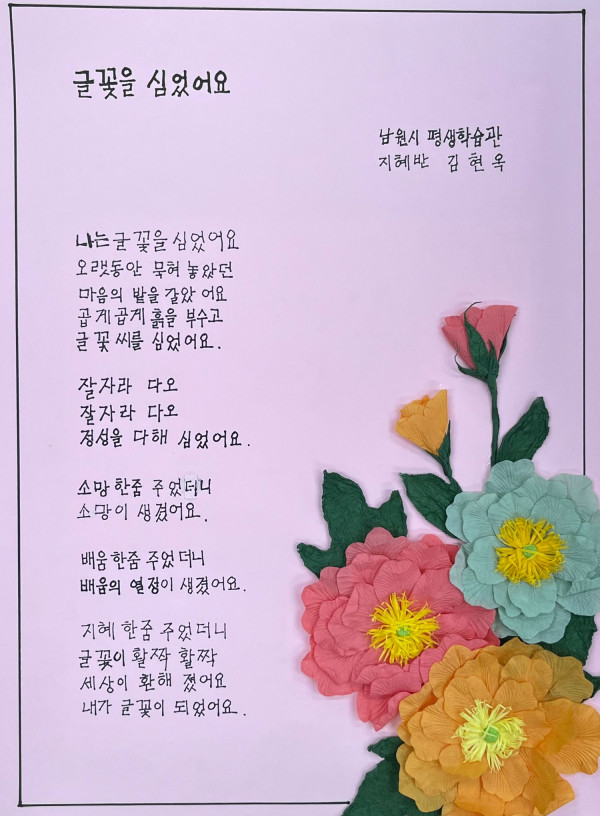 글꽃을 심었어요
남원시 평생학습관
지혜반 김현옥
나는 글꽃을 심었어요
오랫동안 묵혀 놓았던
마음의 밭을 갈았 어요
곱게곱게 흙을 부수고
글 꽃 씨를 심었어요.
잘자라 다오
잘자라 다오
정성을 다해 심었어요.
소망 한줌 주었더니
소망이 생겼어요.
배움 한줌 주었더니
배움의 열정이 생겼어요.
지혜 한줌 주었더니
글꽃이 활짝 활짝
세상이 환해 졌어요
내가 글꽃이 되었어요.